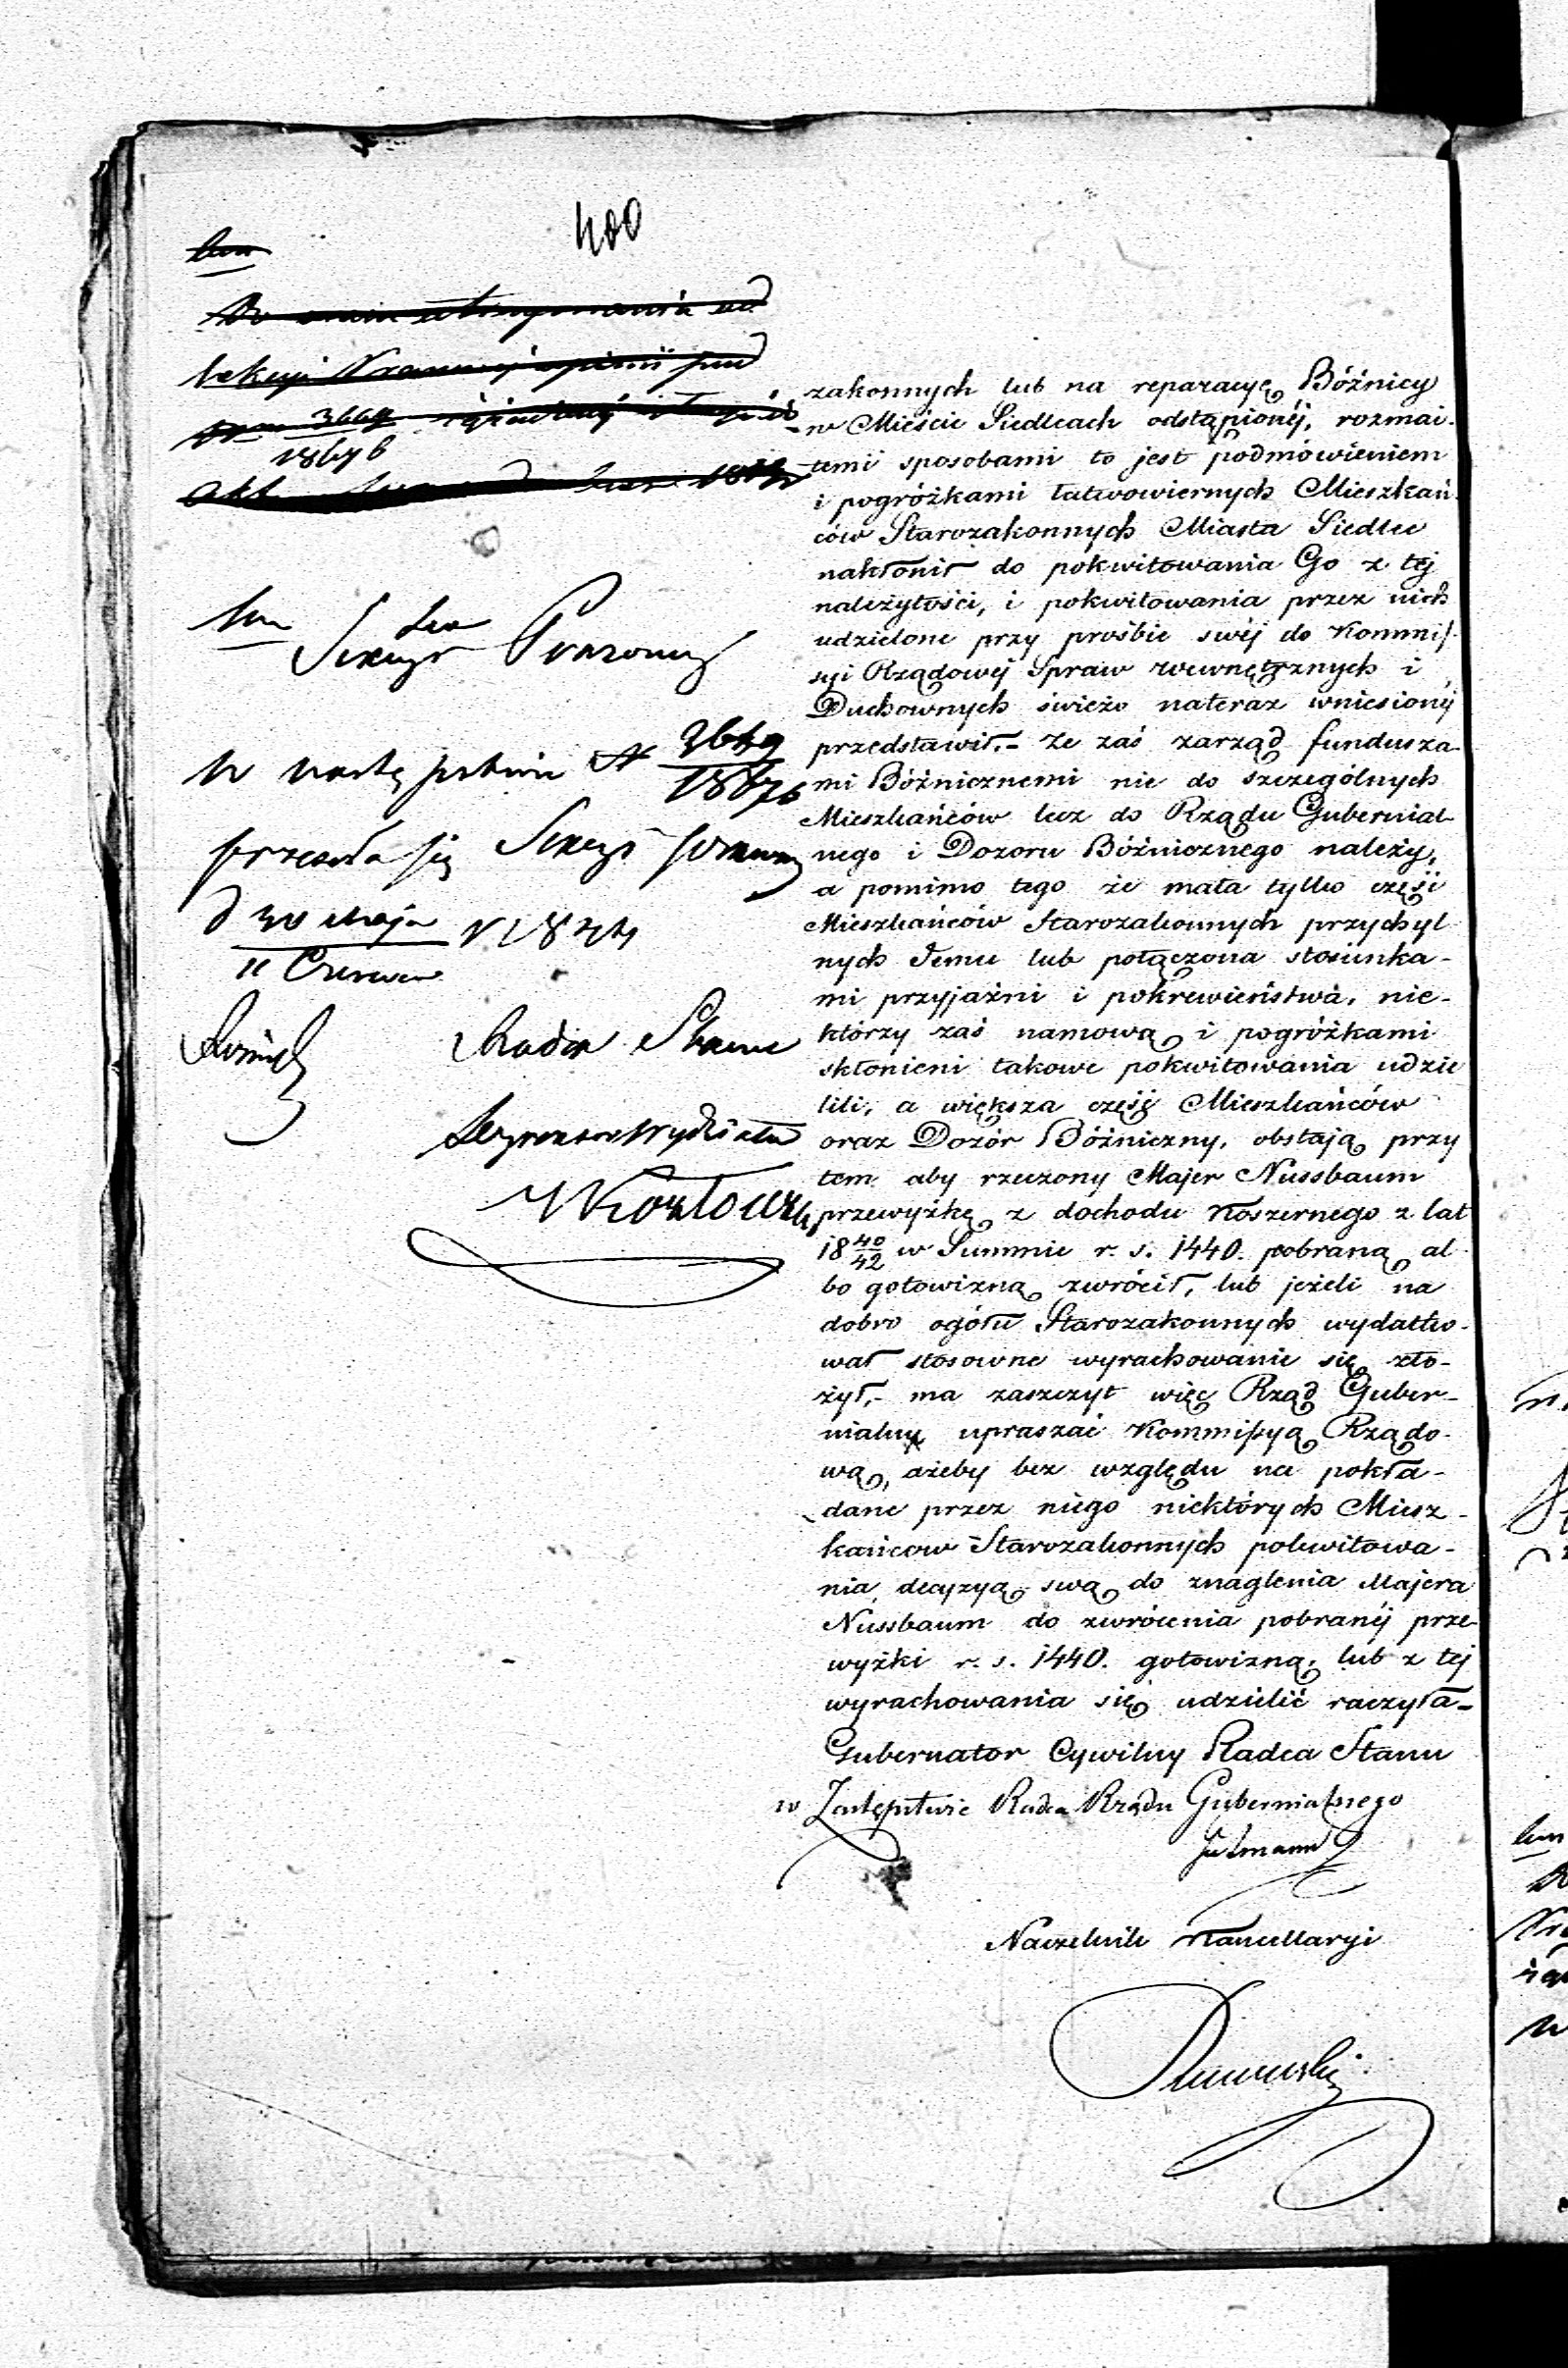 400
Sekcyi Prawnej
w
przesyła się Sekcyi Prawnej
d 30 Maja
11 Czerwca
Radca Stanu
Dyrektor Wydziału
zakonnych lub na reparacyę Bóźnicy
w Mieście Siedlcach odstąpionéj, rozmai-
temi sposobami to jest podmówieniem
i pogróżkami łatwowiernych Mieszkań-
ców Starozakonnych Miasta Siedlec
nakłonił do pokwitowania Go z téj
należytości, i pokwitowania przez nich
udzielone przy prośbie swéj do Kommis-
syi Rządowéj Spraw Wewnętrznych i
Duchownych świeżo nateraz wniesionéj
przedstawił,- że zaś zarząd fundusza-
mi Bóźnicznemi nie do szczególnych
Mieszkańców lecz do Rządu Gubernial-
nego i Dozoru Bóźnicznego należy,
a pomimo tego że mała tylko część
Mieszkańców Starozakonnych przychyl
nych Jemu lub połączona stosunka-
mi przyjaźni i pokrewieństwa, nie-
którzy zaś namową i pogróżkami
skłonieni takowe pokwitowania udzie
lili, a większa część Mieszkańców
oraz Dozór Bóźniczny, obstają przy
tem aby rzeczony Majer Nussbaum
przewyżkę z dochodu Koszernego z lat
18 40/42 w Summie r. s. 1440. pobraną al-
bo gotowizną zwrócił, lub jeżeli na
dobro ogółu Starozakonnych wydatko-
wał stosowne wyrachowanie się zło-
żył,- ma zaszczyt więc Rząd Guber-
nialny upraszać Kommissyą Rządo-
wą, ażeby bez względu na pokła-
dane przez niego niektórych Miesz-
kańcow Starozakonnych pokwitowa-
nia, decyzyą swą do znaglenia Majera
Nussbaum do zwrócenia pobranéj prze-
wyżki r. s. 1440. gotowizną, lub z tej
wyrachowania się udzielić raczyła-
Gubernator Cywilny Radca Stanu
w Zastępstwie Radca Rządu Gubernialnego
Naczelnik Kancellaryi